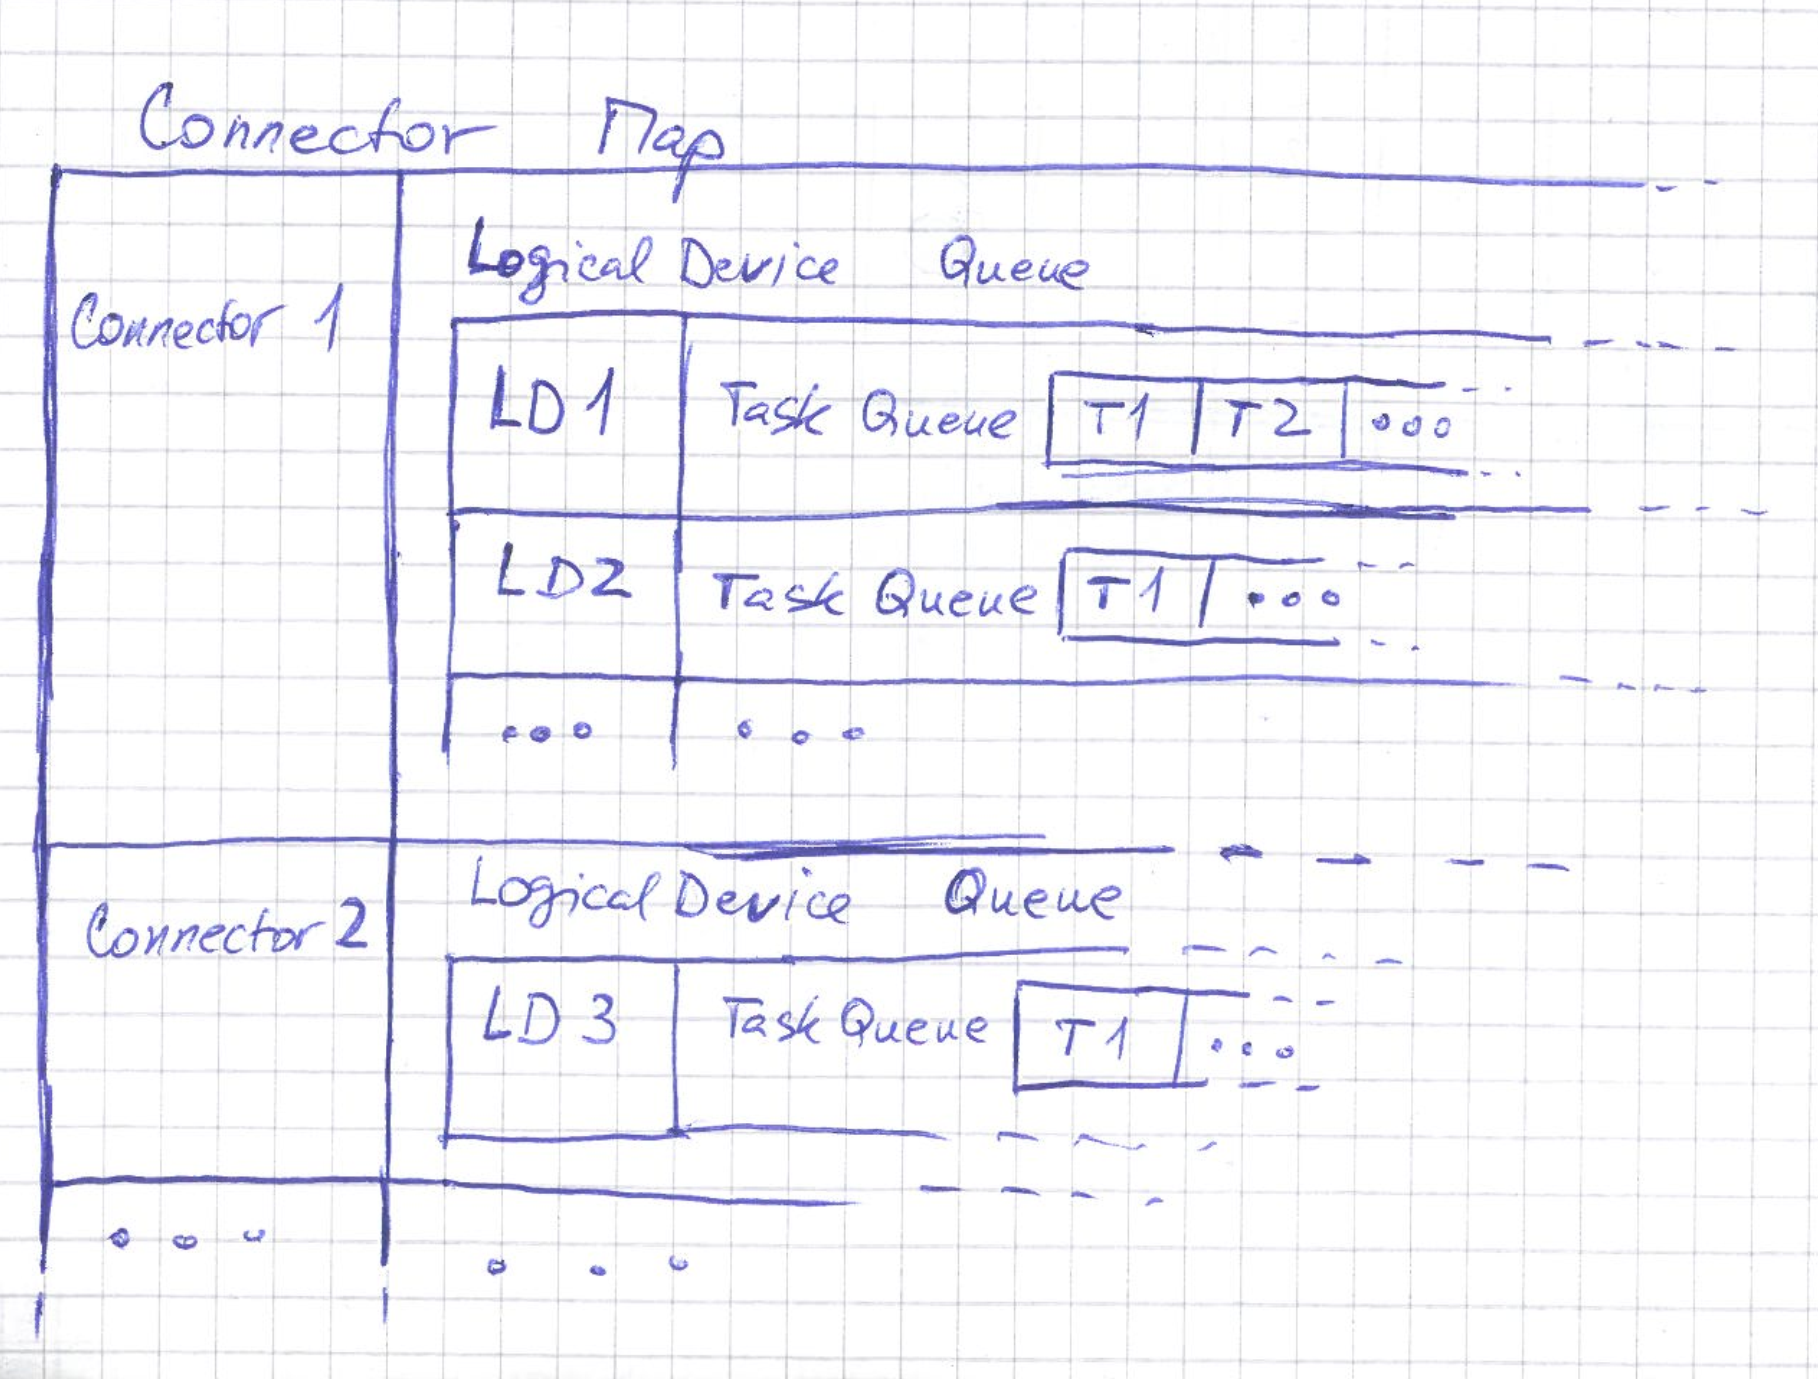 Connector Map
Logical Device Queue
Connector 1
LD1 Task Queue T1 T2 ...
LD2 Task Queue T1 ...
... ...
Logical Device Queue
Connector 2
LD3 Task Queue T1 ...
... ...